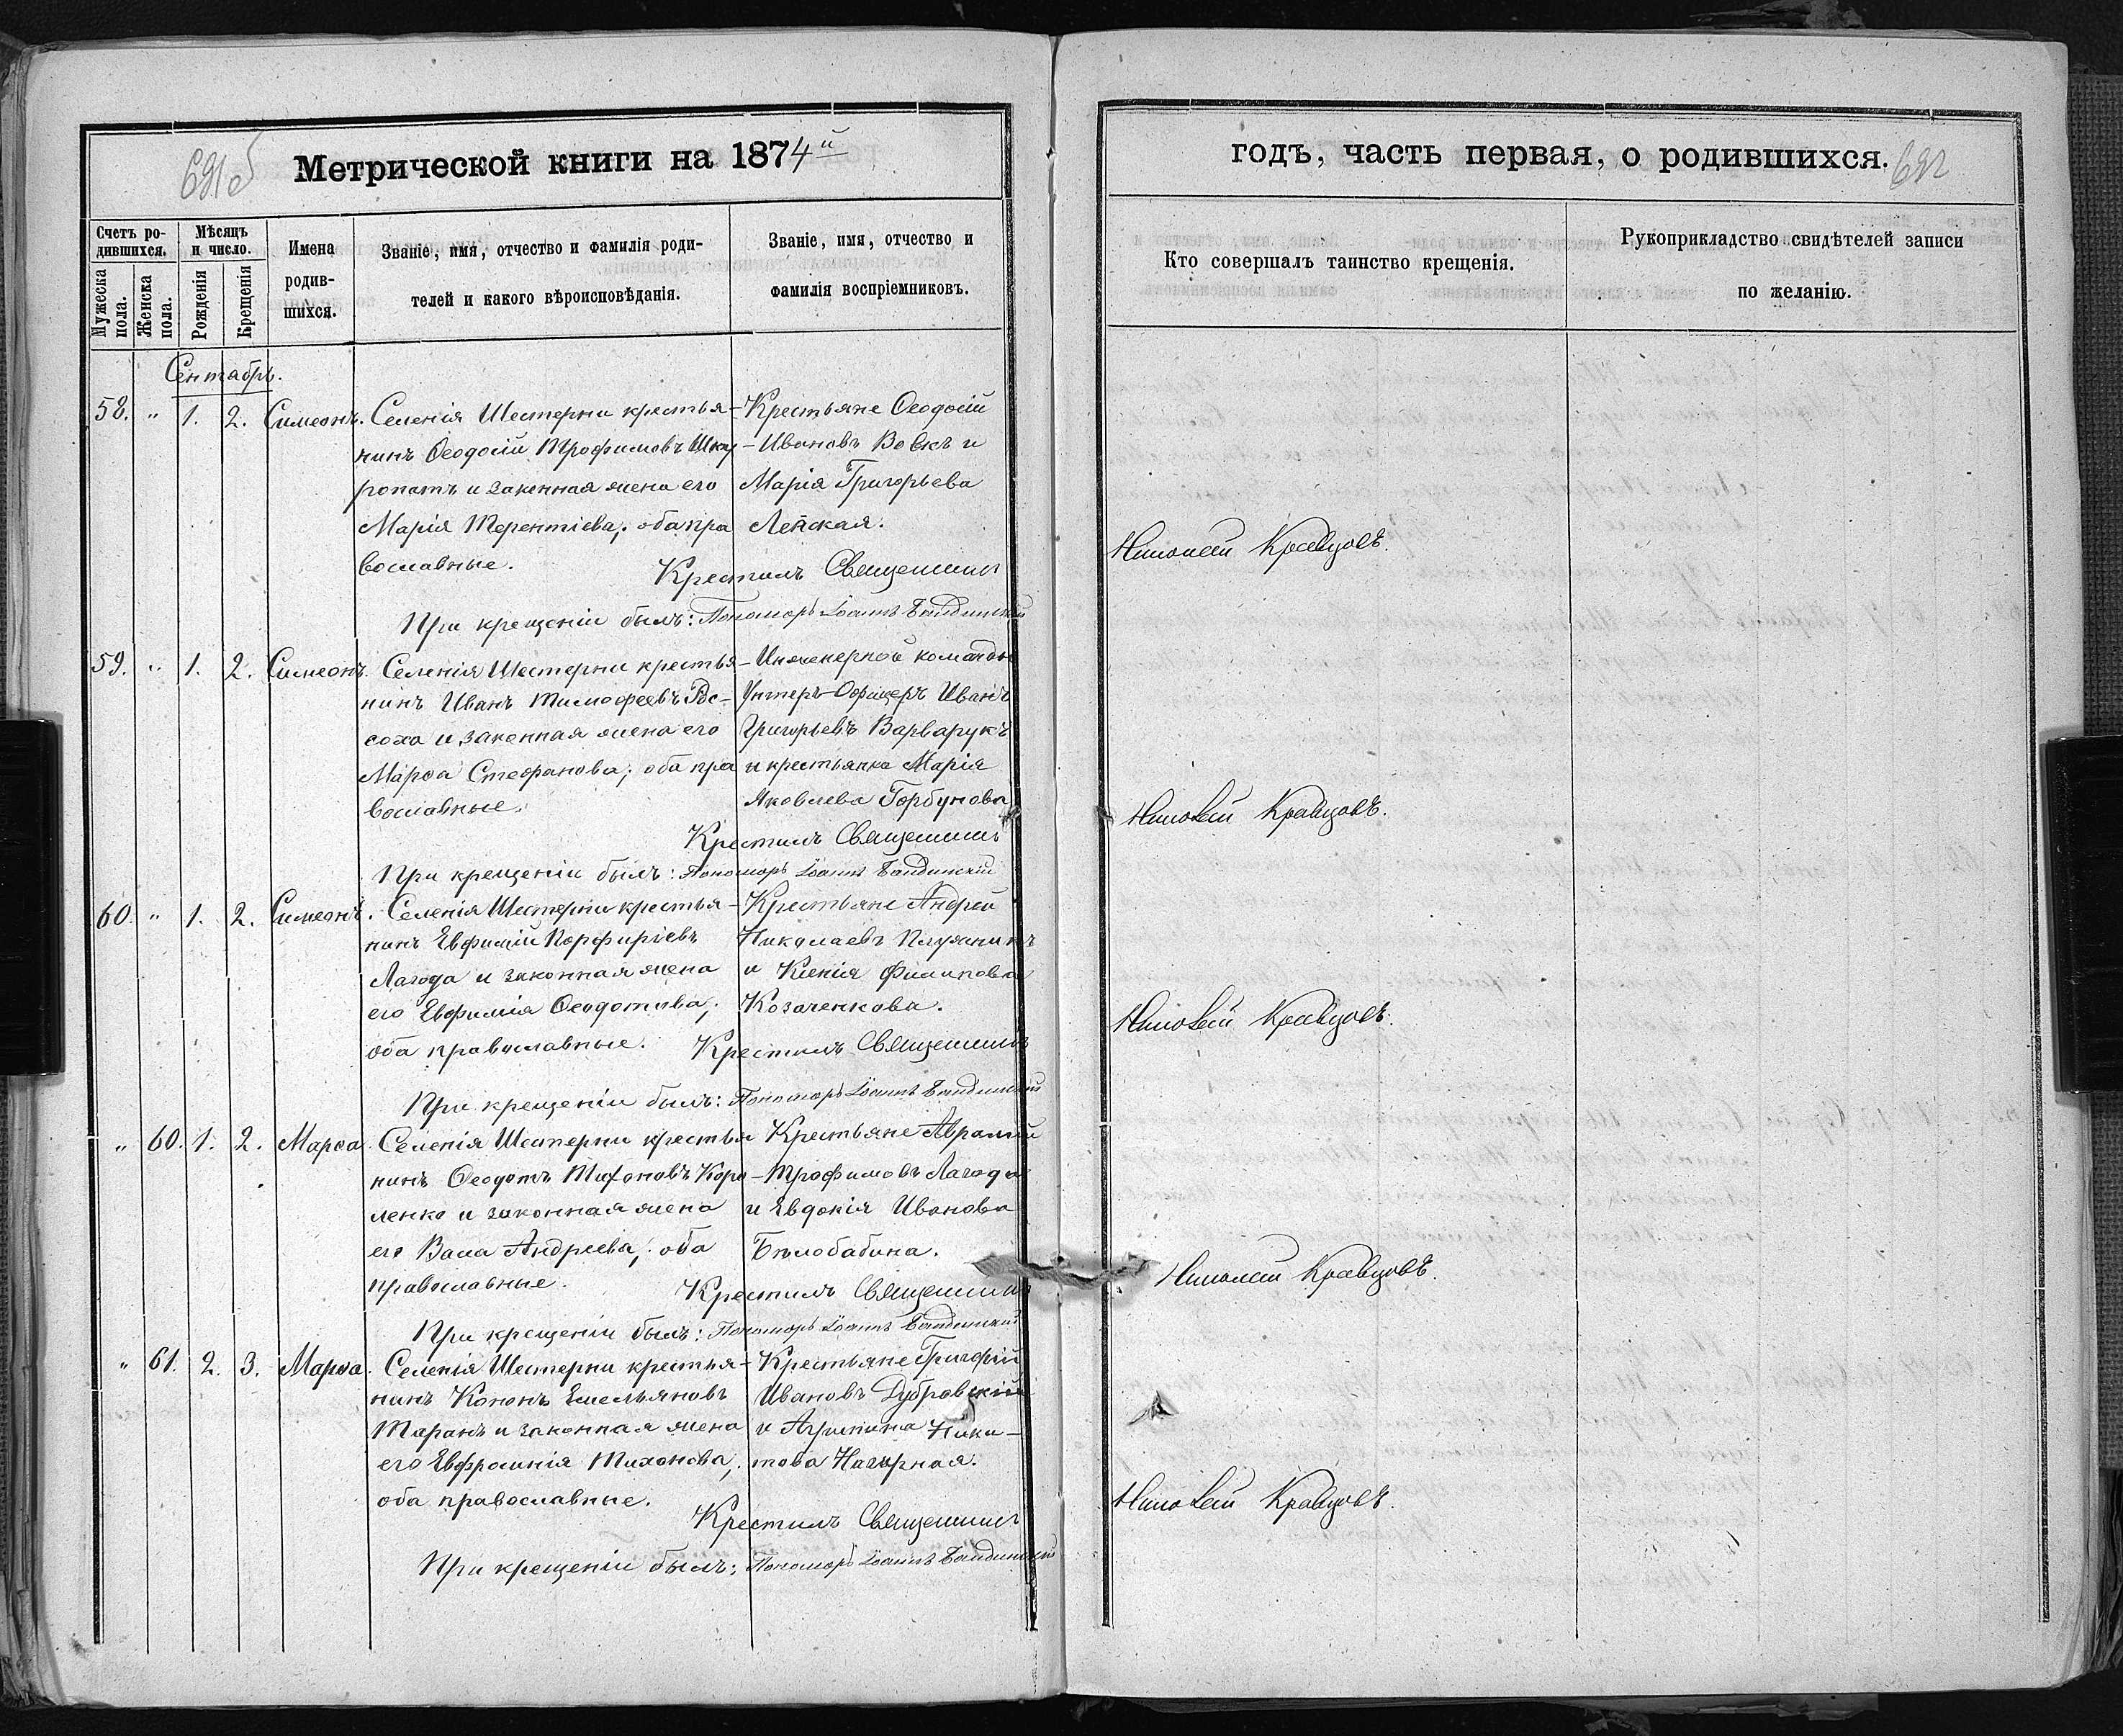 691 об
Метрической книги на 1874й
годъ, часть первая, о родившихся.
692
Счетъ ро-
дившихся.
Мужеска пола.
Женска пола.
Мѣсяцъ
и число.
Рожденія
Крещенія
Имена
родив-
шихся.
Званіе, имя, отчество и фамилія роди-
телей и какого вѣроисповѣданія.
Званіе, имя, отчество и
фамилія воспріемниковъ.
Кто совершалъ таинство крещенія.
Рукоприкладство свидѣтелей записи
по желанію.
Сентябрь.
58. " 1. 2. Симеонъ. Селенія Шестерни крестья- Крестьяне Ѳеодосій
нинъ Ѳеодосій Трофимовъ Шку- Ивановъ Вовкъ и
ропатъ и законная жена его Марія Григорьева
Марія Терентіева; оба пра Лейская.
вославные.
Крестилъ Священникъ Николай Кравцовъ.
При крещеніи былъ: Пономарь Іоаннъ
59. " 1. 2. Симеонъ. Селенія Шестерни крестья- Инженерной команды
нинъ Иванъ Тимофеевъ Рос- Унтеръ-Офицеръ Иванъ
соха и законная жена его Григорьевъ Варварукъ
Марѳа Стефанова; оба пра и крестьянка Марія
вославные. Яковлева Горбунова
Крестилъ Священникъ Николай Кравцовъ.
При крещеніи былъ: Пономарь Іоаннъ
60. " 1. 2. Симеонъ. Селенія Шестерни крестья- Крестьяне Андрей
нинъ Евфимій Порфиріевъ Николаевъ
Лагода и законная жена и Ксенія Филиповна
его Евфимія Ѳеодотива; Козаченкова.
оба православные.
Крестилъ Священникъ Николай Кравцовъ.
При крещеніи былъ: Пономарь Іоаннъ
" 60. 1. 2. Марѳа. Селенія Шестерни крестья Крестьяне Аврамій
нинъ Ѳеодотъ Тихоновъ Коро- Трофимовъ Лагода
ленко и законная жена и Евдокія Иванова
его Васса Андреева; оба Бѣлобабина.
православные.
Крестилъ Священникъ Николай Кравцовъ.
При крещеніи былъ: Пономарь Іоаннъ
" 61. 2. 3. Марѳа. Селенія Шестерни крестья- Крестьяне Григорій
нинъ Кононъ Емельяновъ Ивановъ Дубравскій
Таранъ и законная жена и Агрипина Ники-
его Евфросинія Тихонова; това Нагорная.
оба православные.
Крестилъ Священникъ Николай Кравцовъ.
При крещеніи былъ: Пономарь Іоаннъ